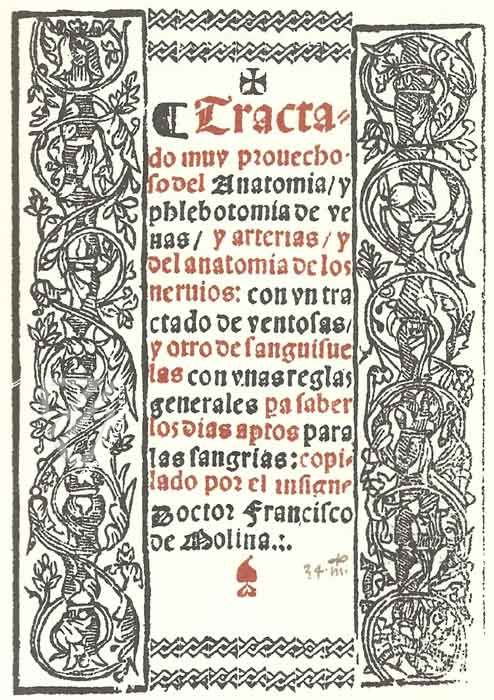 ¶ Tracta-
do muy prouecho-
so del Anatomia/ y
phlebotomia de ve
nas/ y arterias/ y
del anatomia de los
neruios: con vn tra
ctado de ventosas/
y otro de sanguisue
las con vnas reglas
generales pa saber
los dias aptos para
las sangrias: copi-
lado por el insigne
Doctor Francisco
de Molina.:.